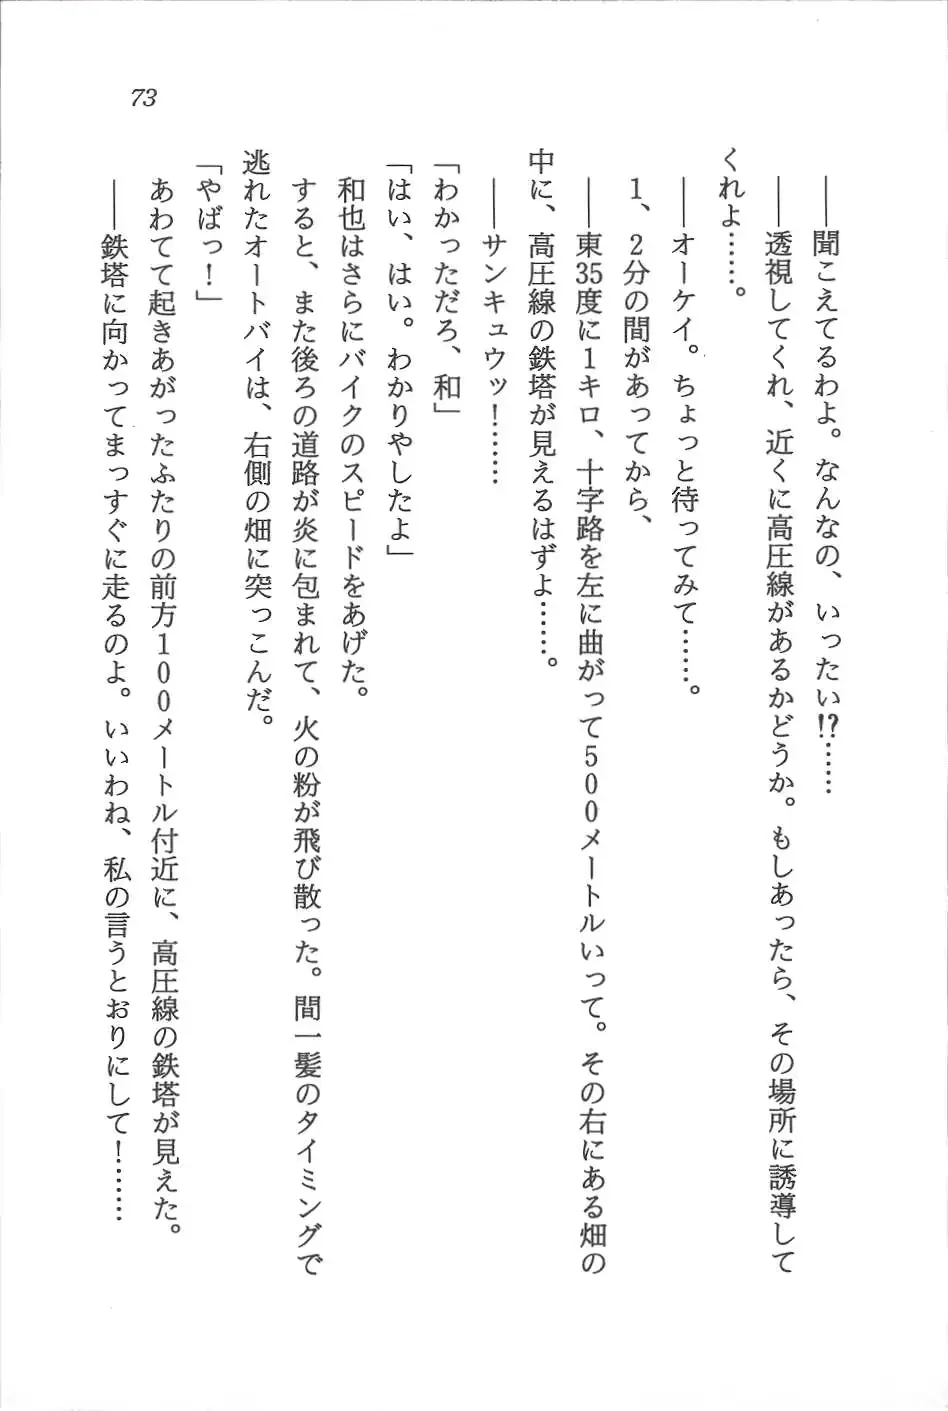 73
――聞こえてるわよ。なんなの、いったい!?……
――透視してくれ、近くに高圧線があるかどうか。もしあったら、その場所に誘導して
くれよ……。
――オーケイ。ちょっと待ってみて……。
1、2分の間があってから、
――東35度に1キロ、十字路を左に曲がって500メートルいって。その右にある畑の
中に、高圧線の鉄塔が見えるはずよ……。
――サンキュウッ!……
「わかっただろ、和」
「はい、はい。わかりやしたよ」
和也はさらにバイクのスピードをあげた。
すると、また後ろの道路が炎に包まれて、火の粉が飛び散った。間一髪のタイミングで
逃れたオートバイは、右側の畑に突っこんだ。
「やばっ!」
あわてて起きあがったふたりの前方100メートル付近に、高圧線の鉄塔が見えた。
――鉄塔に向かってまっすぐに走るのよ。いいわね、私の言うとおりにして!……